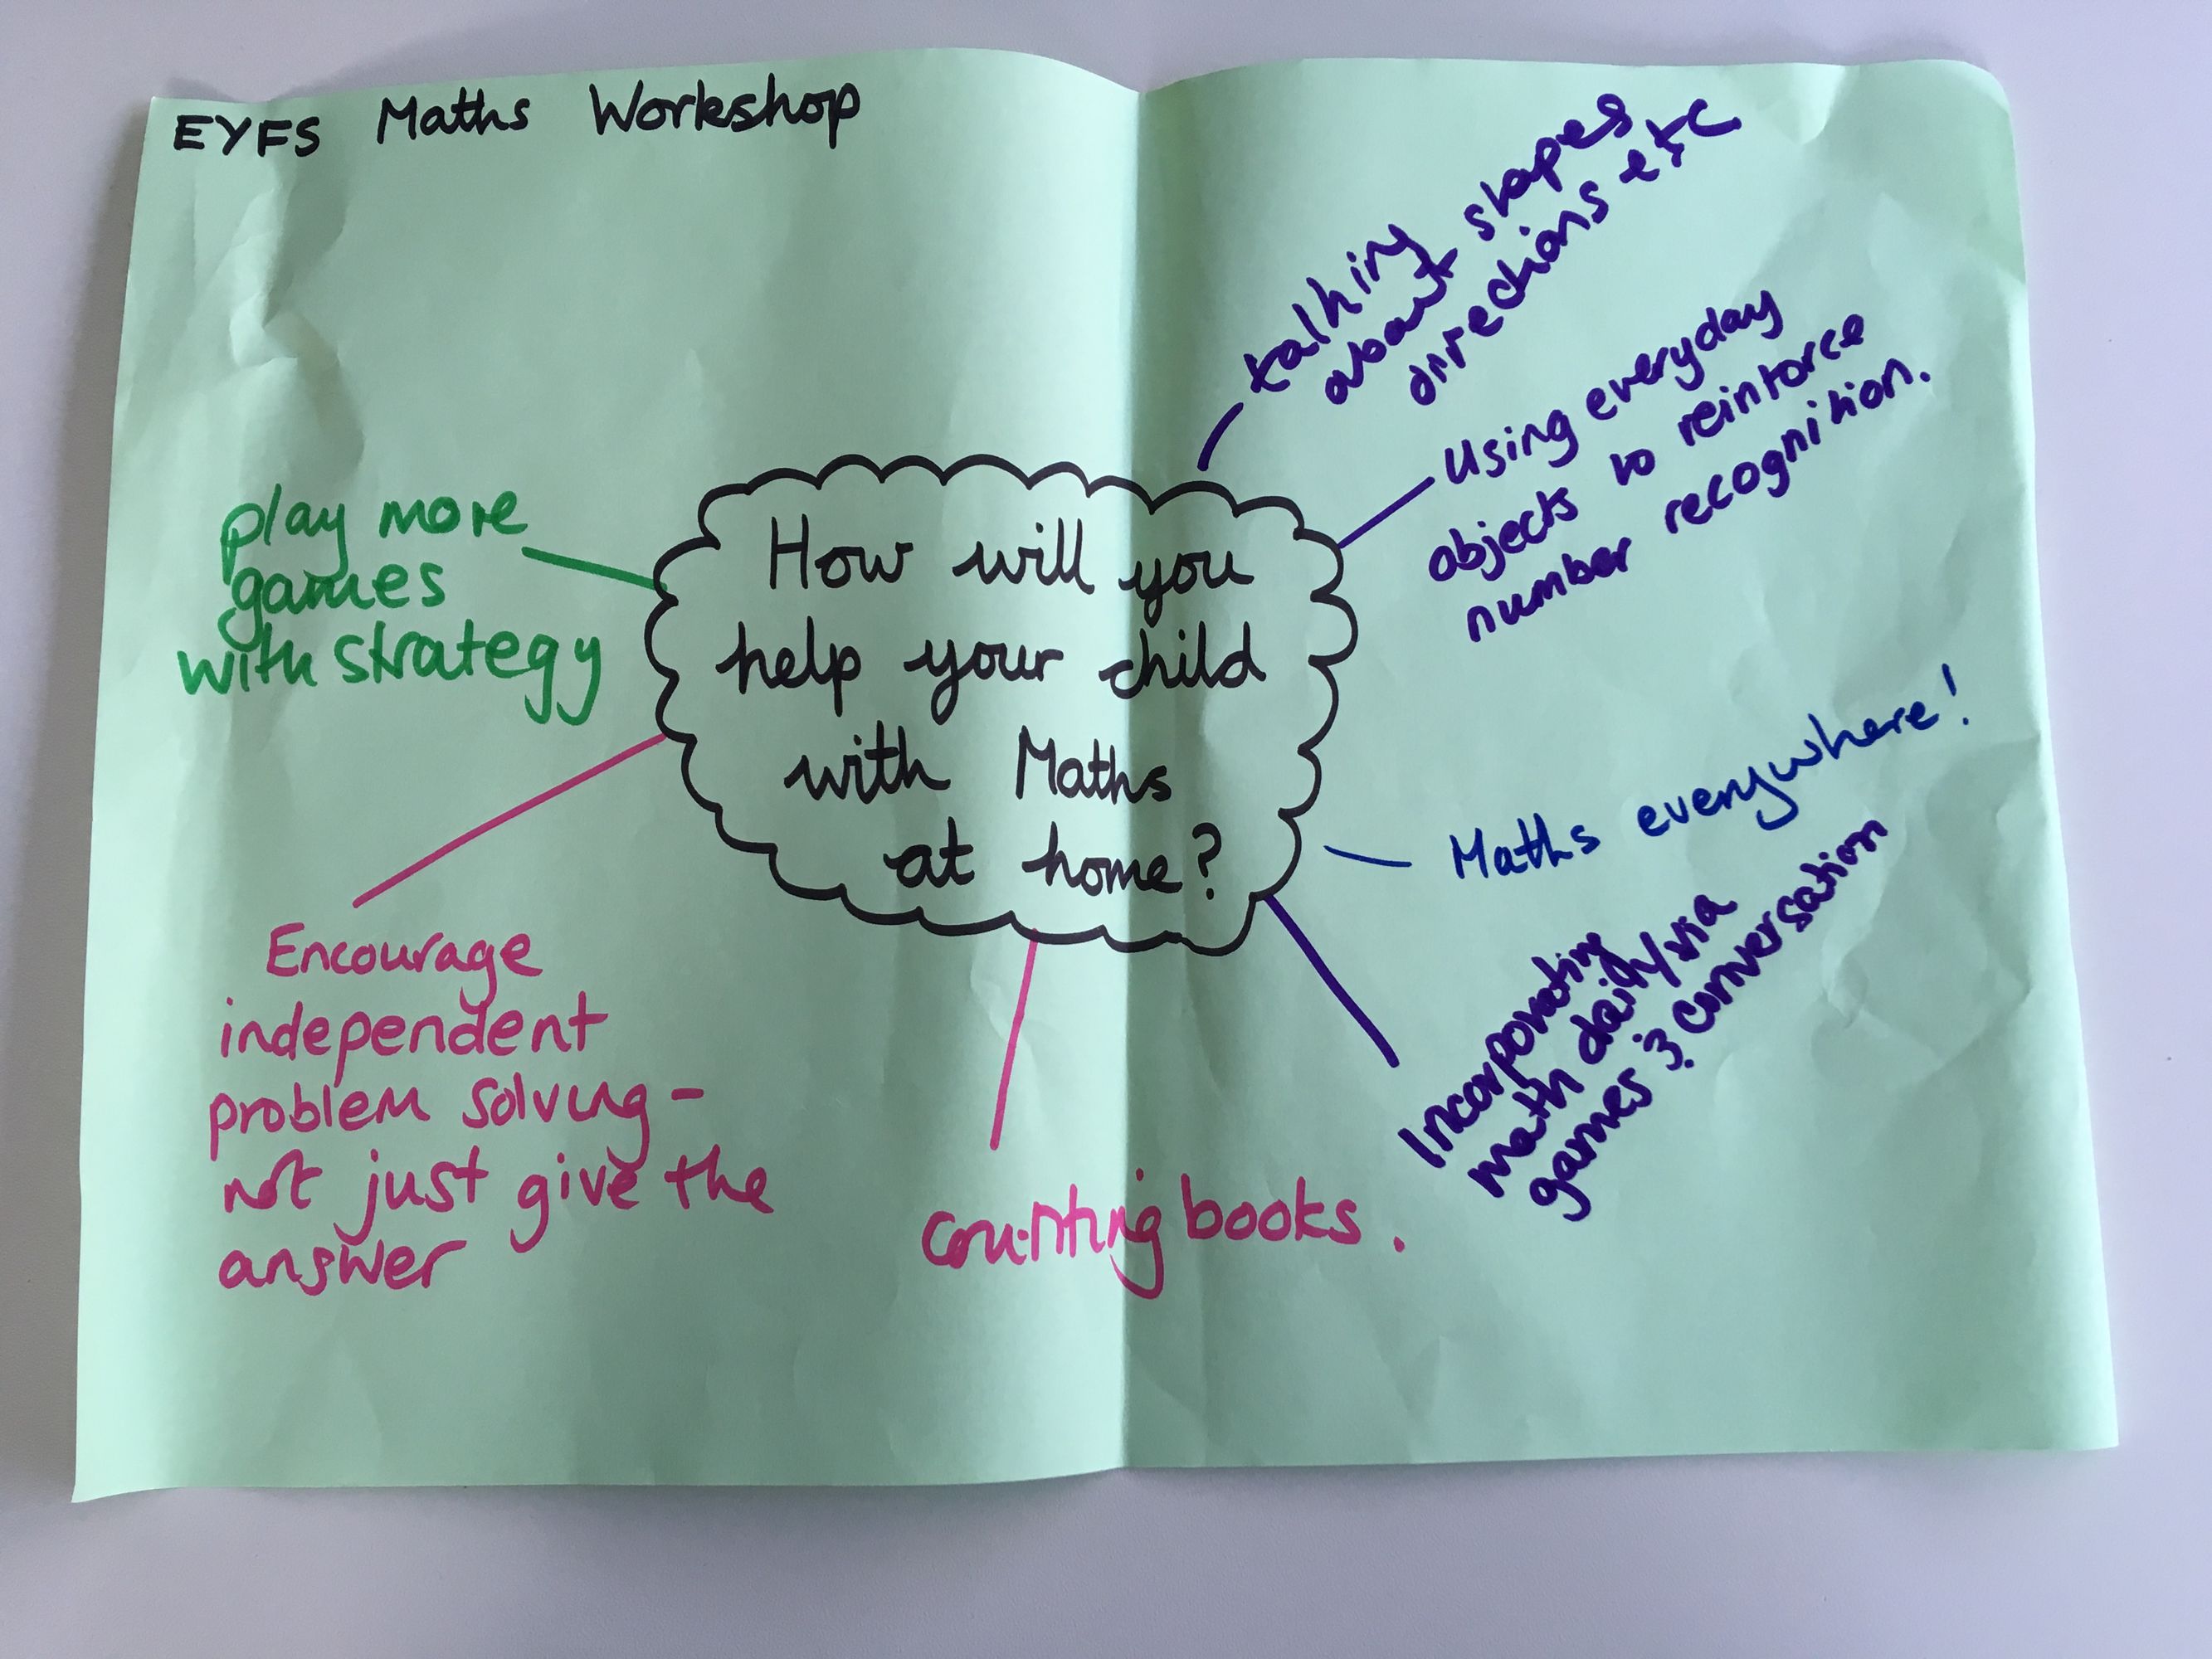 EYFS Maths Workshop
How will you
help your child
with Maths
at home?
talking
about shapes
directions etc
Using everyday
objects to reinforce
number recognition.
Maths everywhere!
Incorporating
math daily/via
games & conversation
counting books.
Encourage
independent
problem solving -
not just give the
answer
play more
games
with strategy